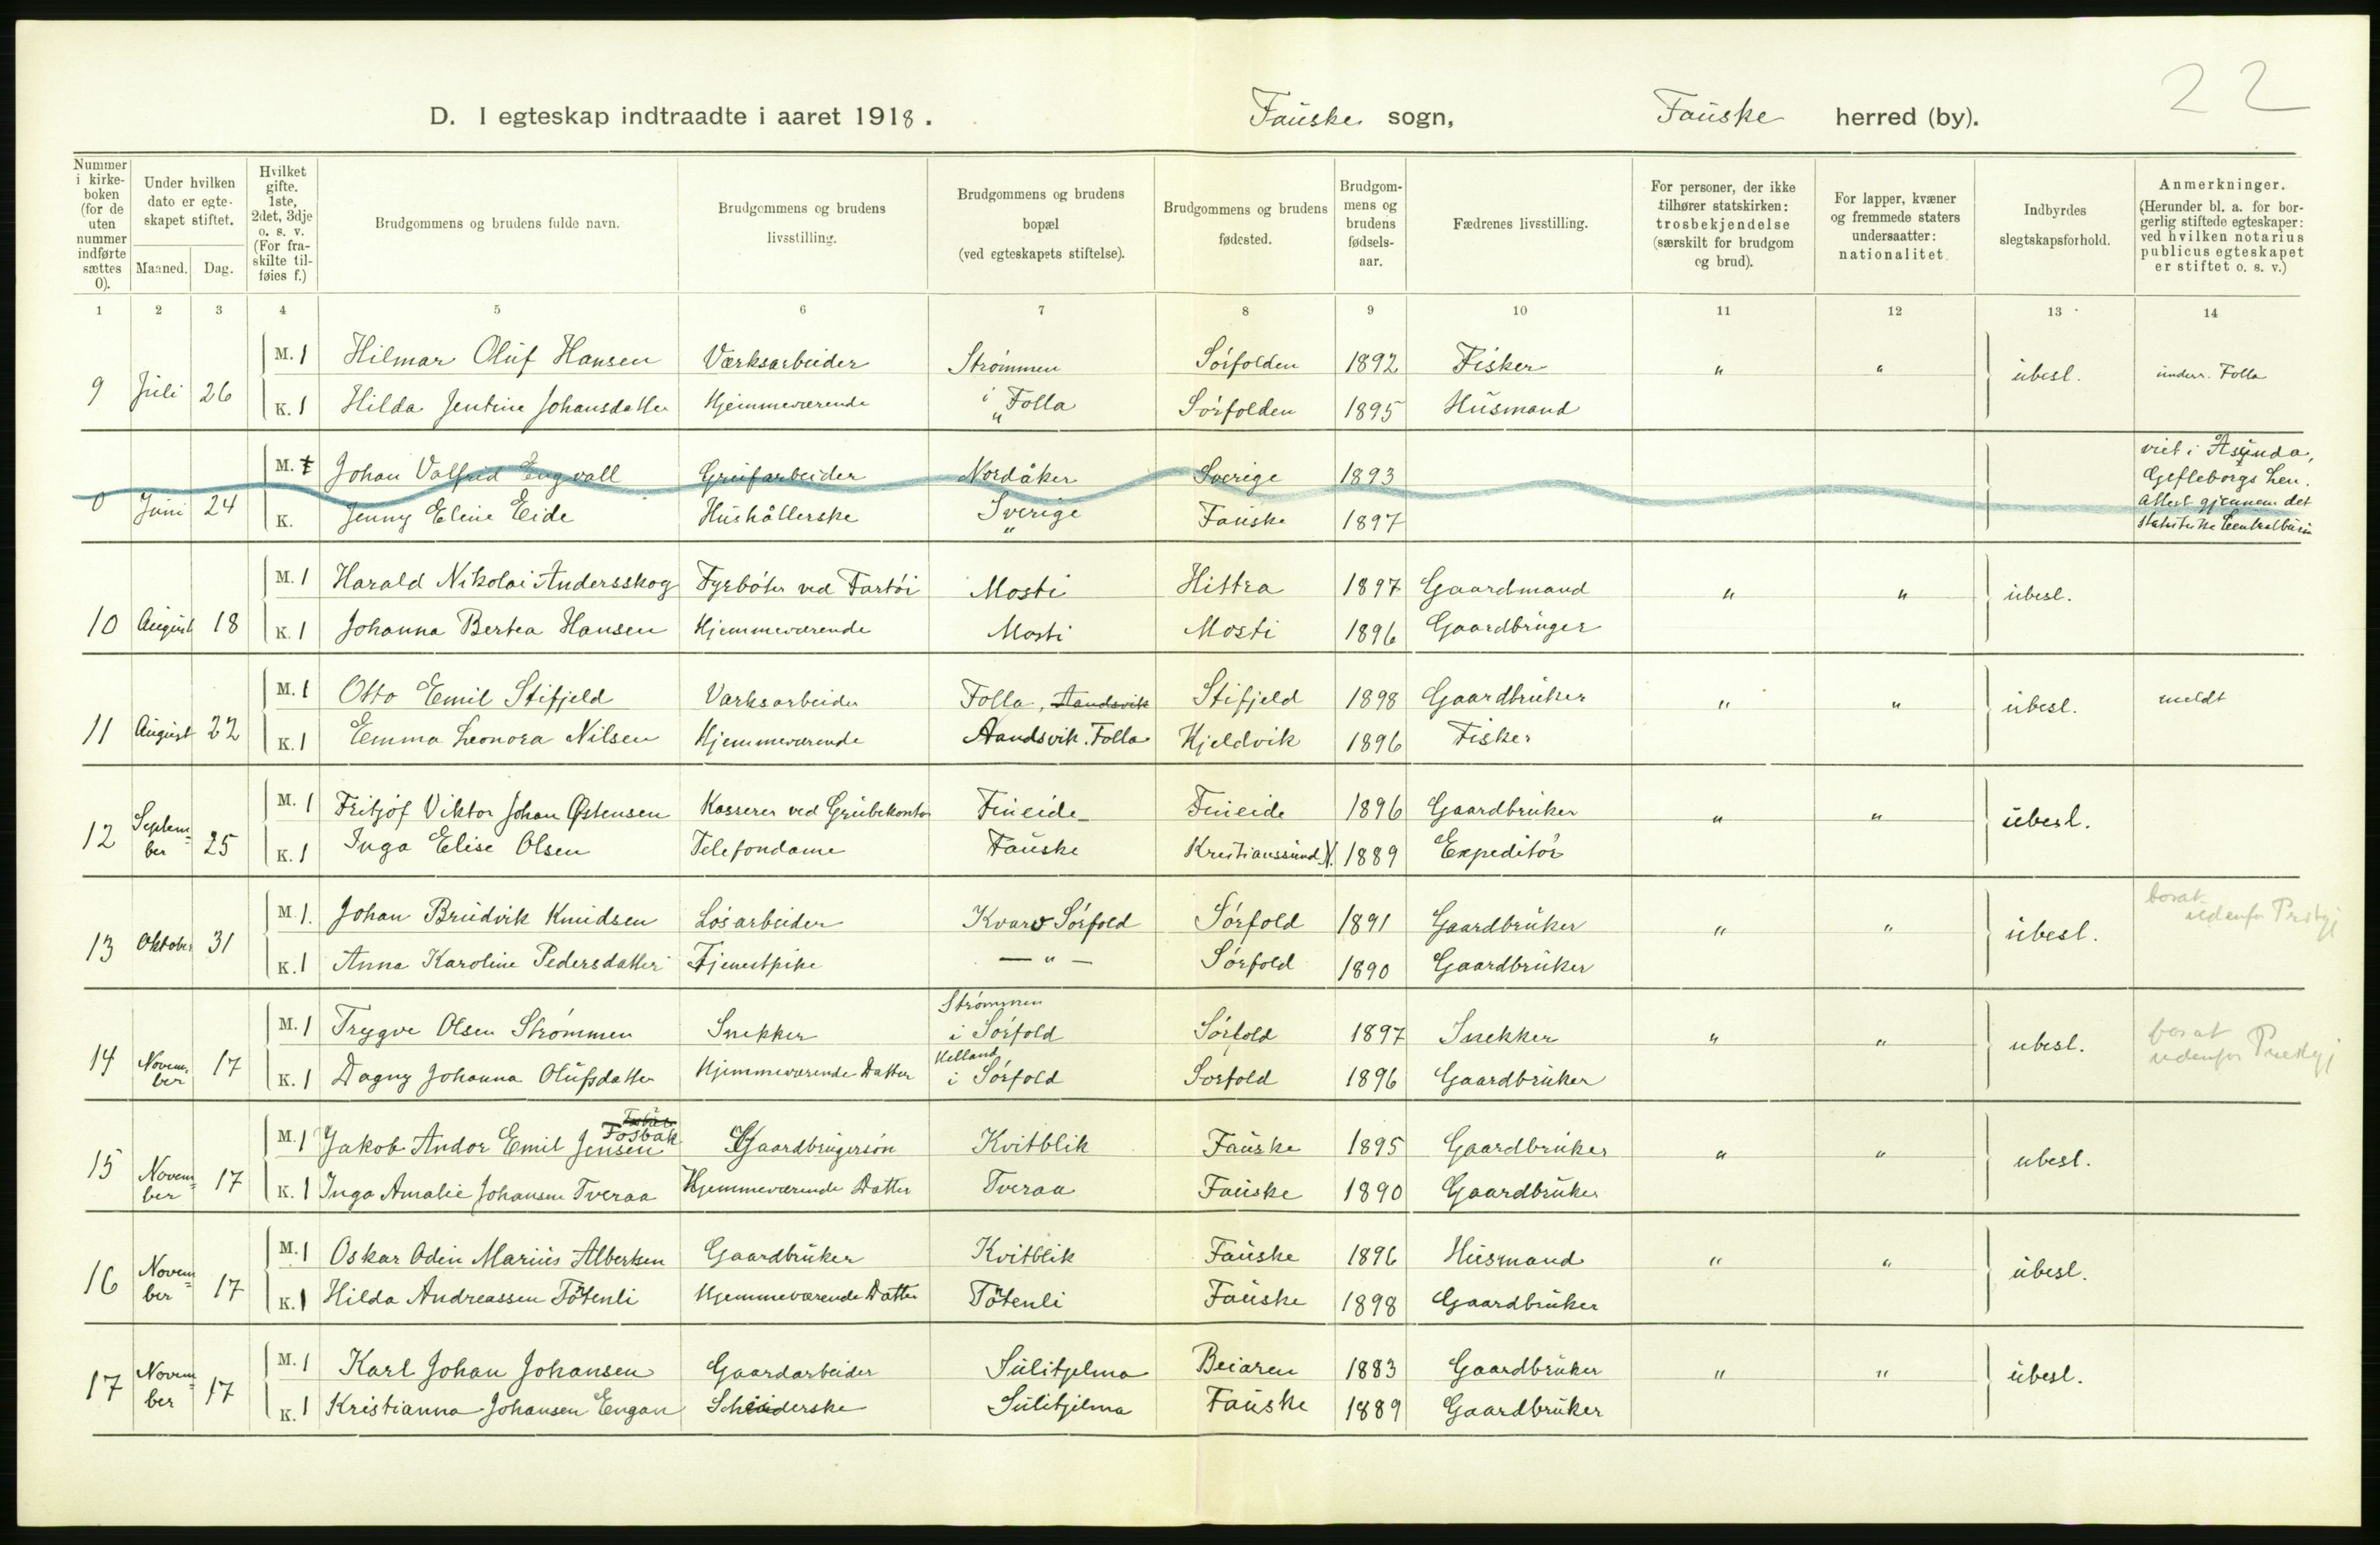 22
D. I egteskap indtraadte i aaret 1918. Fauske sogn, Fauske herred (by).
Nummer i kirkeboken (for de uten nummer indførte sættes 0). | Under hvilken dato er egteskapet stiftet. Maaned. Dag. | Hvilket gifte. 1ste, 2det, 3dje o. s. v. (For fraskilte tilføies f.) | Brudgommens og brudens fulde navn. | Brudgommens og brudens livsstilling. | Brudgommens og brudens bopæl (ved egteskapets stiftelse). | Brudgommens og brudens fødested. | Brudgommens og brudens fødselsaar. | Fædrenes livsstilling. | For personer, der ikke tilhører statskirken: trosbekjendelse (særskilt for brudgom og brud). | For lapper, kvæner og fremmede staters undersaatter: nationalitet. | Indbyrdes slegtskapsforhold. | Anmerkninger. (Herunder bl. a. for borgerlig stiftede egteskaper: ved hvilken notarius publicus egteskapet er stiftet o. s. v.)
1 2 3 4 5 6 7 8 9 10 11 12 13 14
M. 1 Hilmar Oluf Hansen Værksarbeider Strømmen Sörfolden 1892 Fisker " "
9 Juli 26 K. 1 Hilda Jentine Johansdatter Hjemmeværende i Folla " Sörfolden 1895 Husmand ubesl. unders. Folla
M. 1 Johan Valfrid Engvall Grufarbeider Nordåker Sverige 1893 viet i Gefleborgs Len.
0 Juni 24 K. Jenny Eline Eide Hushållerske Sverige " Fauske 1897 Attest gjennem det statistiske Centralbüro
M. 1 Harald Nikolai Andersskog Fyrböter ved Fartöi Mosti Hittra 1897 Gaardmand " "
10 August 18 K. 1 Johanna Bertea Hansen Hjemmeværende Mosti Mosti 1896 Gaardbruger ubesl.
M. 1 Otto Emil Stifjeld Værksarbeider Folla, Aandsvik Stifjeld 1898 Gaardbruker " " meldt
11 August 22 K. 1 Emma Leonora Nilsen Hjemmeværende Aandsvik. Folla Kjeldvik 1896 Fisker ubesl.
M. 1 Fritjof Viktor Johan Østensen Kasserer ved Grubekontor Fineide Fineide 1896 Gaardbruker " "
12 September 25 K. 1 Inga Elise Olsen Telefondame Fauske Kristianssund N. 1889 Expeditör ubesl.
M. 1. Johan Brudvik Knudsen Lösarbeider Kvarv Sörfold Sörfold 1891 Gaardbruker " " bosat udenfor Prstgj
13 Oktober 31 K. 1 Anna Karoline Pedersdatter Tjenestpike — " — Sörfold 1890 Gaardbruker ubesl.
M. 1 Trygve Olsen Strömmen Snekker Strömmen i Sörfold Sörfold 1897 Snekker " " bosat udenfor Prestgj
14 November 17 K. 1 Dagny Johanna Olufsdatter Hjemmeværende Datter Kelland i Sörfold Sörfold 1896 Gaardbruker ubesl.
M. 1 Jakob Andor Emil Jensen Fosbak Gaardbrugersön Kvitblik Fauske 1895 Gaardbruker " "
15 November 17 K. 1 Inga Amalie Johansen Tveraa Hjemmeværende Datter Tveraa Fauske 1890 Gaardbruker ubesl.
M. 1 Oskar Odin Marius Albertsen Gaardbruker Kvitblik Fauske 1896 Husmand " "
16 November 17 K. 1 Hilda Andreassen Tötenli Hjemmeværende Datter Tötenli Fauske 1898 Gaardbruker ubesl.
M. 1 Karl Johan Johansen Gaardarbeider Sulitjelma Beiaren 1883 Gaardbruker " "
17 November 17 K. 1 Kristianna Johansen Engan Sulitjelma Fauske 1889 Gaardbruker ubesl.